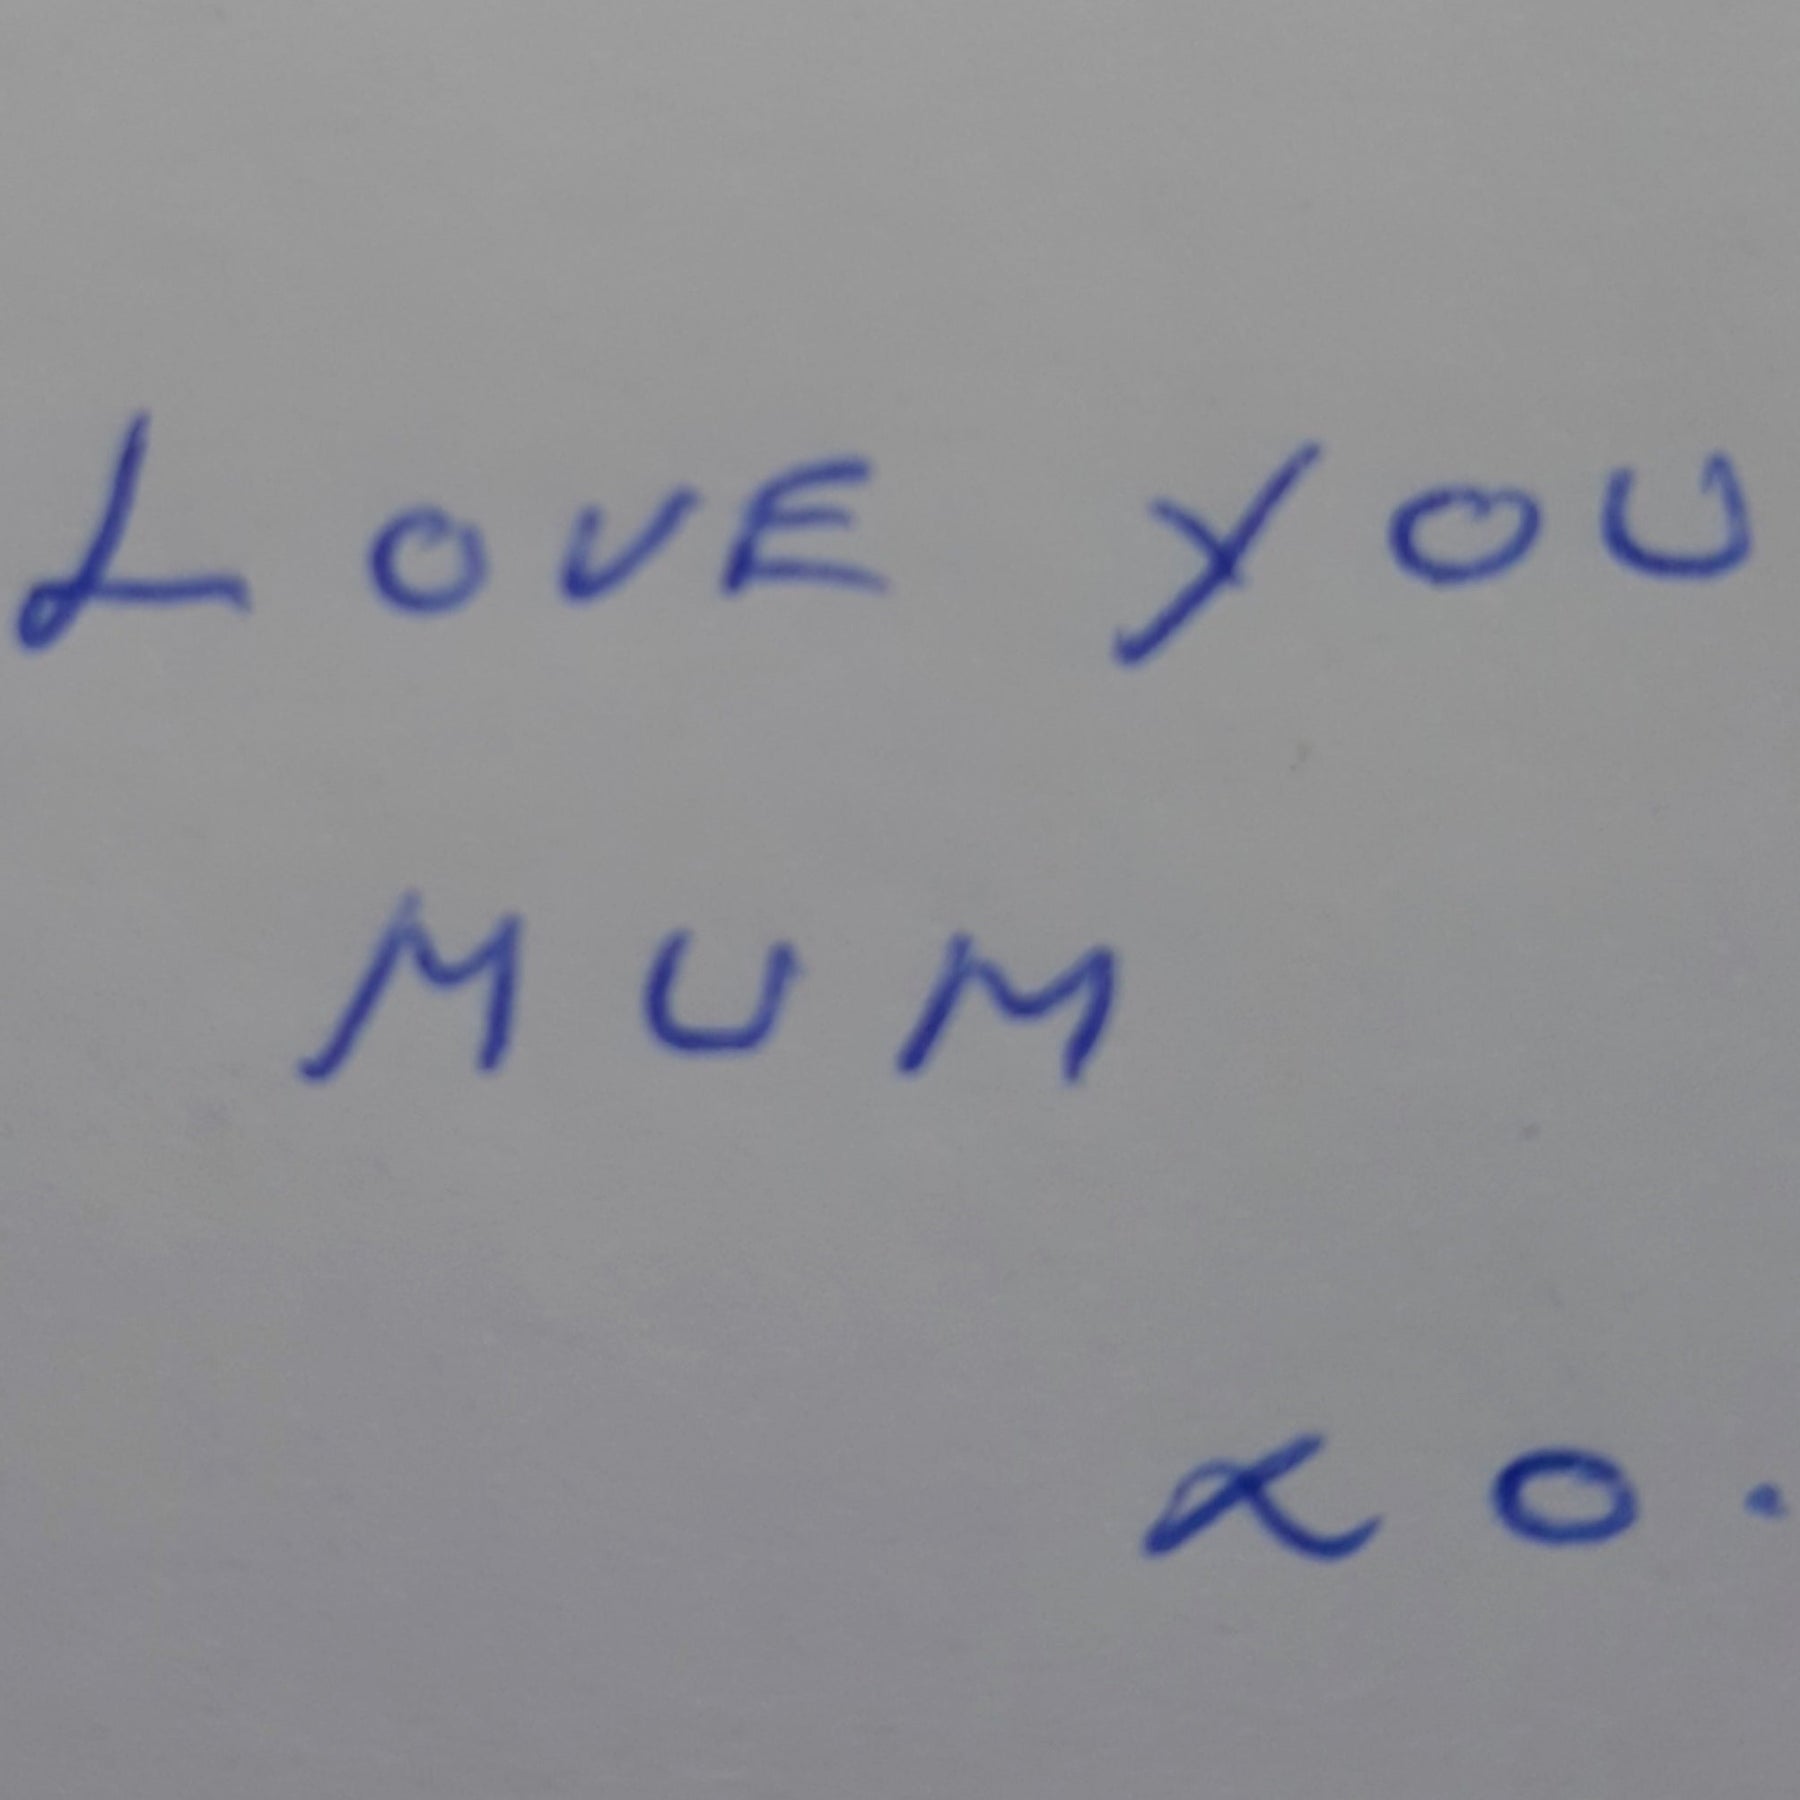 LOVE YOU
MUM
xo.